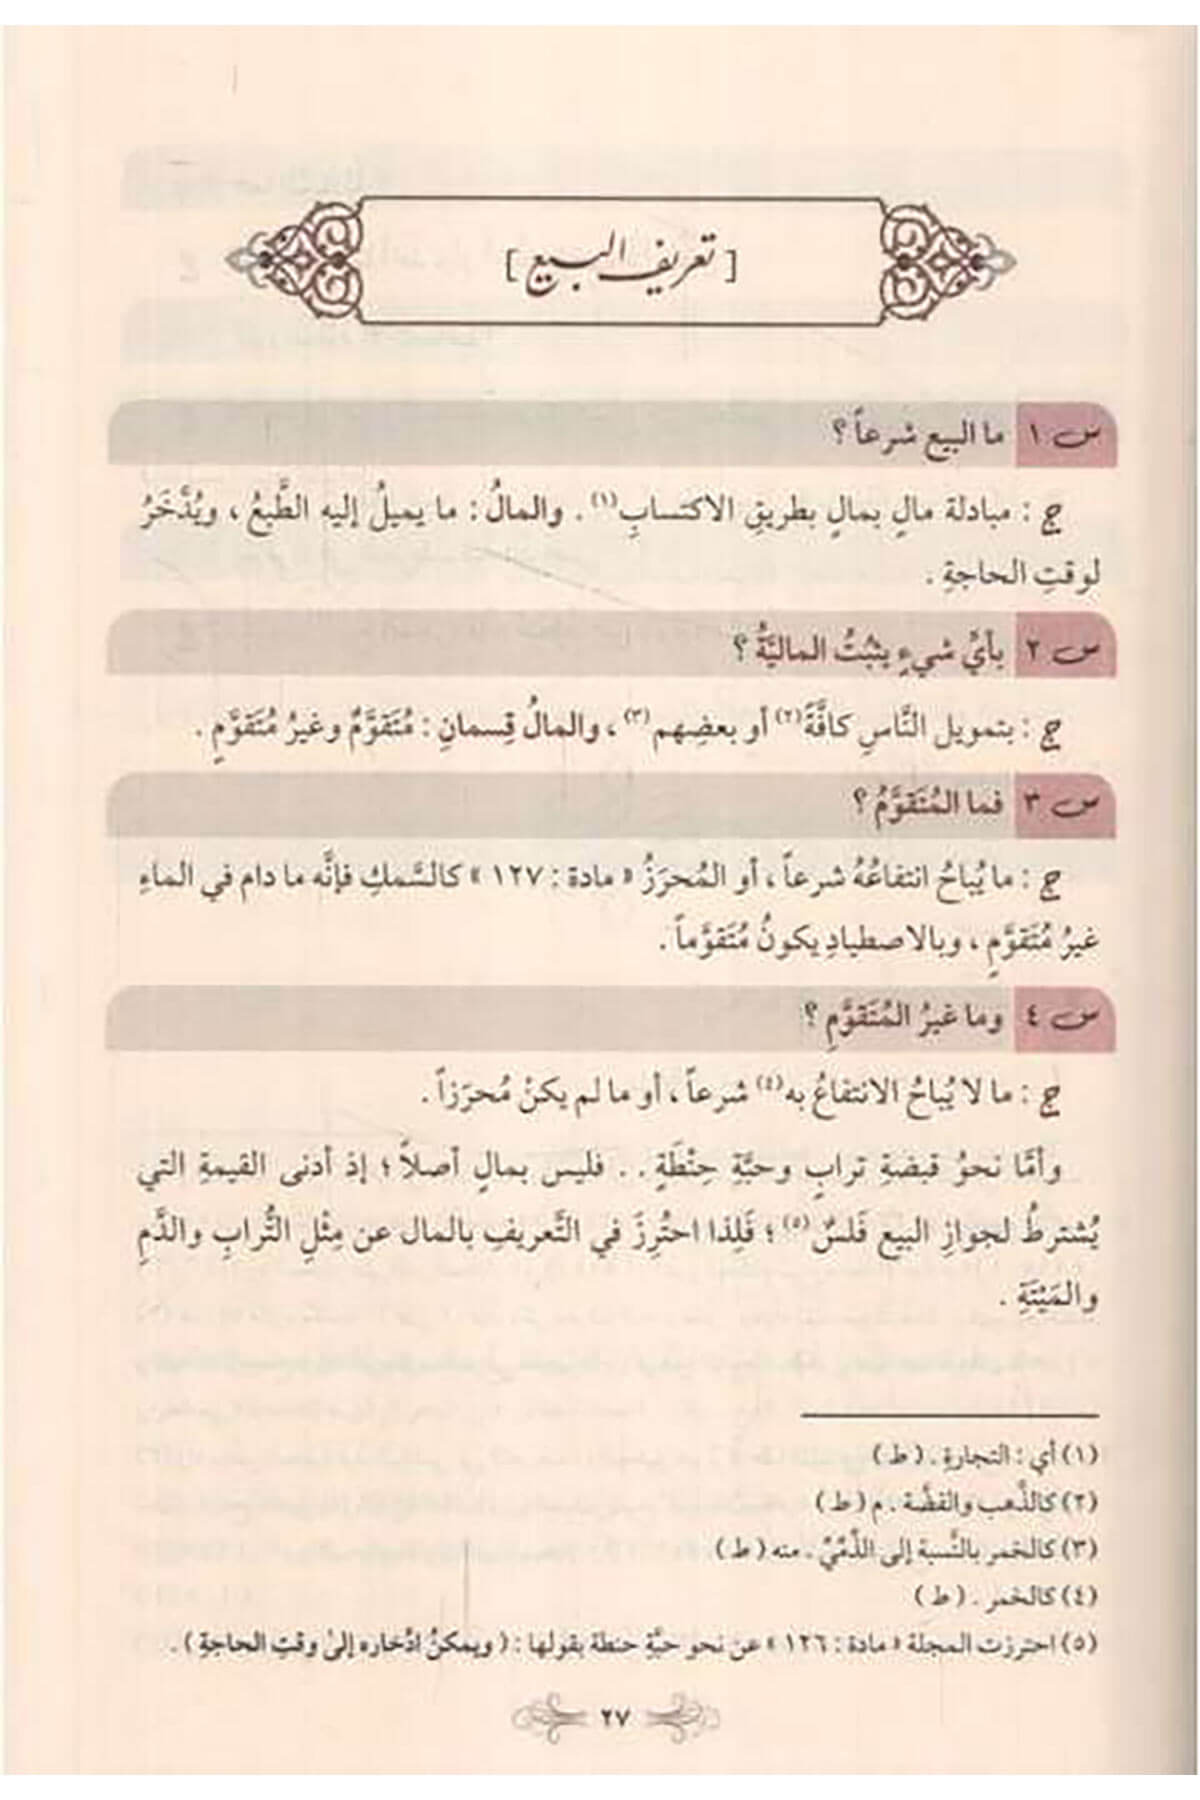 [ تعريف البيع ]
س ١ ما البيع شرعاً ؟
ج : مبادلة مالٍ بمالٍ بطريقِ الاكتسابِ(١) . والمالُ : ما يميلُ إليه الطَّبعُ ، ويُدَّخَرُ
لوقتِ الحاجةِ .
س ٢ بأيِّ شيءٍ يثبُتُ الماليَّةُ ؟
ج : بتمويل النَّاسِ كافَّةً(٢) أو بعضِهم(٣) ، والمالُ قِسمانِ : مُتَقوَّمٌ وغيرُ مُتَقوَّمٍ .
س ٣ فما المُتَقوَّمُ ؟
ج : ما يُباحُ انتفاعُهُ شرعاً ، أو المُحرَزُ « مادة : ١٢٧ » كالسَّمكِ فإنَّه ما دام في الماءِ
غيرُ مُتَقوَّمٍ ، وبالاصطيادِ يكونُ مُتَقوَّماً .
س ٤ وما غيرُ المُتَقوَّمِ ؟
ج : ما لا يُباحُ الانتفاعُ به(٤) شرعاً ، أو ما لم يكنْ مُحرَزاً .
وأمَّا نحوُ قبضةِ ترابٍ وحبَّةِ حِنْطَةٍ . . فليس بمالٍ أصلاً ؛ إذ أدنى القيمةِ التي
يُشترطُ لجوازِ البيع فَلسٌ(٥) ؛ فَلِذا احتُرِزَ في التَّعريفِ بالمال عن مِثْلِ التُّرابِ والدَّمِ
والمَيْتَةِ .
(١) أي : التجارةِ . ( ط )
(٢) كالذَّهب والفضَّة . م ( ط )
(٣) كالخمر بالنَّسبة إلى الذِّمِّيِّ . منه ( ط )
(٤) كالخمر . ( ط )
(٥) احترزت المجلة « مادة : ١٢٦ » عن نحو حبَّة حنطة بقولها : ( ويمكنُ ادِّخاره إلىٰ وقتِ الحاجةِ ) .
٢٧